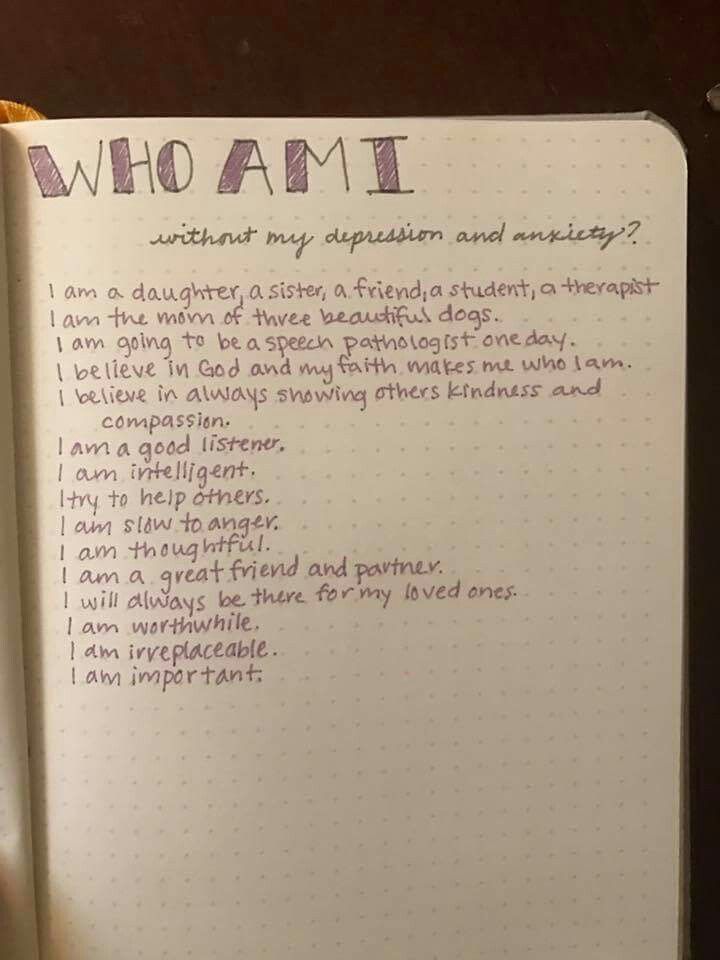 WHO AM I
without my depression and anxiety?
I am a daughter, a sister, a friend, a student, a therapist
I am the mom of three beautiful dogs.
I am going to be a speech pathologist one day.
I believe in God and my faith makes me who I am.
I believe in always showing others kindness and
compassion.
I am a good listener.
I am intelligent.
I try to help others.
I am slow to anger.
I am thoughtful.
I am a great friend and partner.
I will always be there for my loved ones.
I am worthwhile.
I am irreplaceable.
I am important.